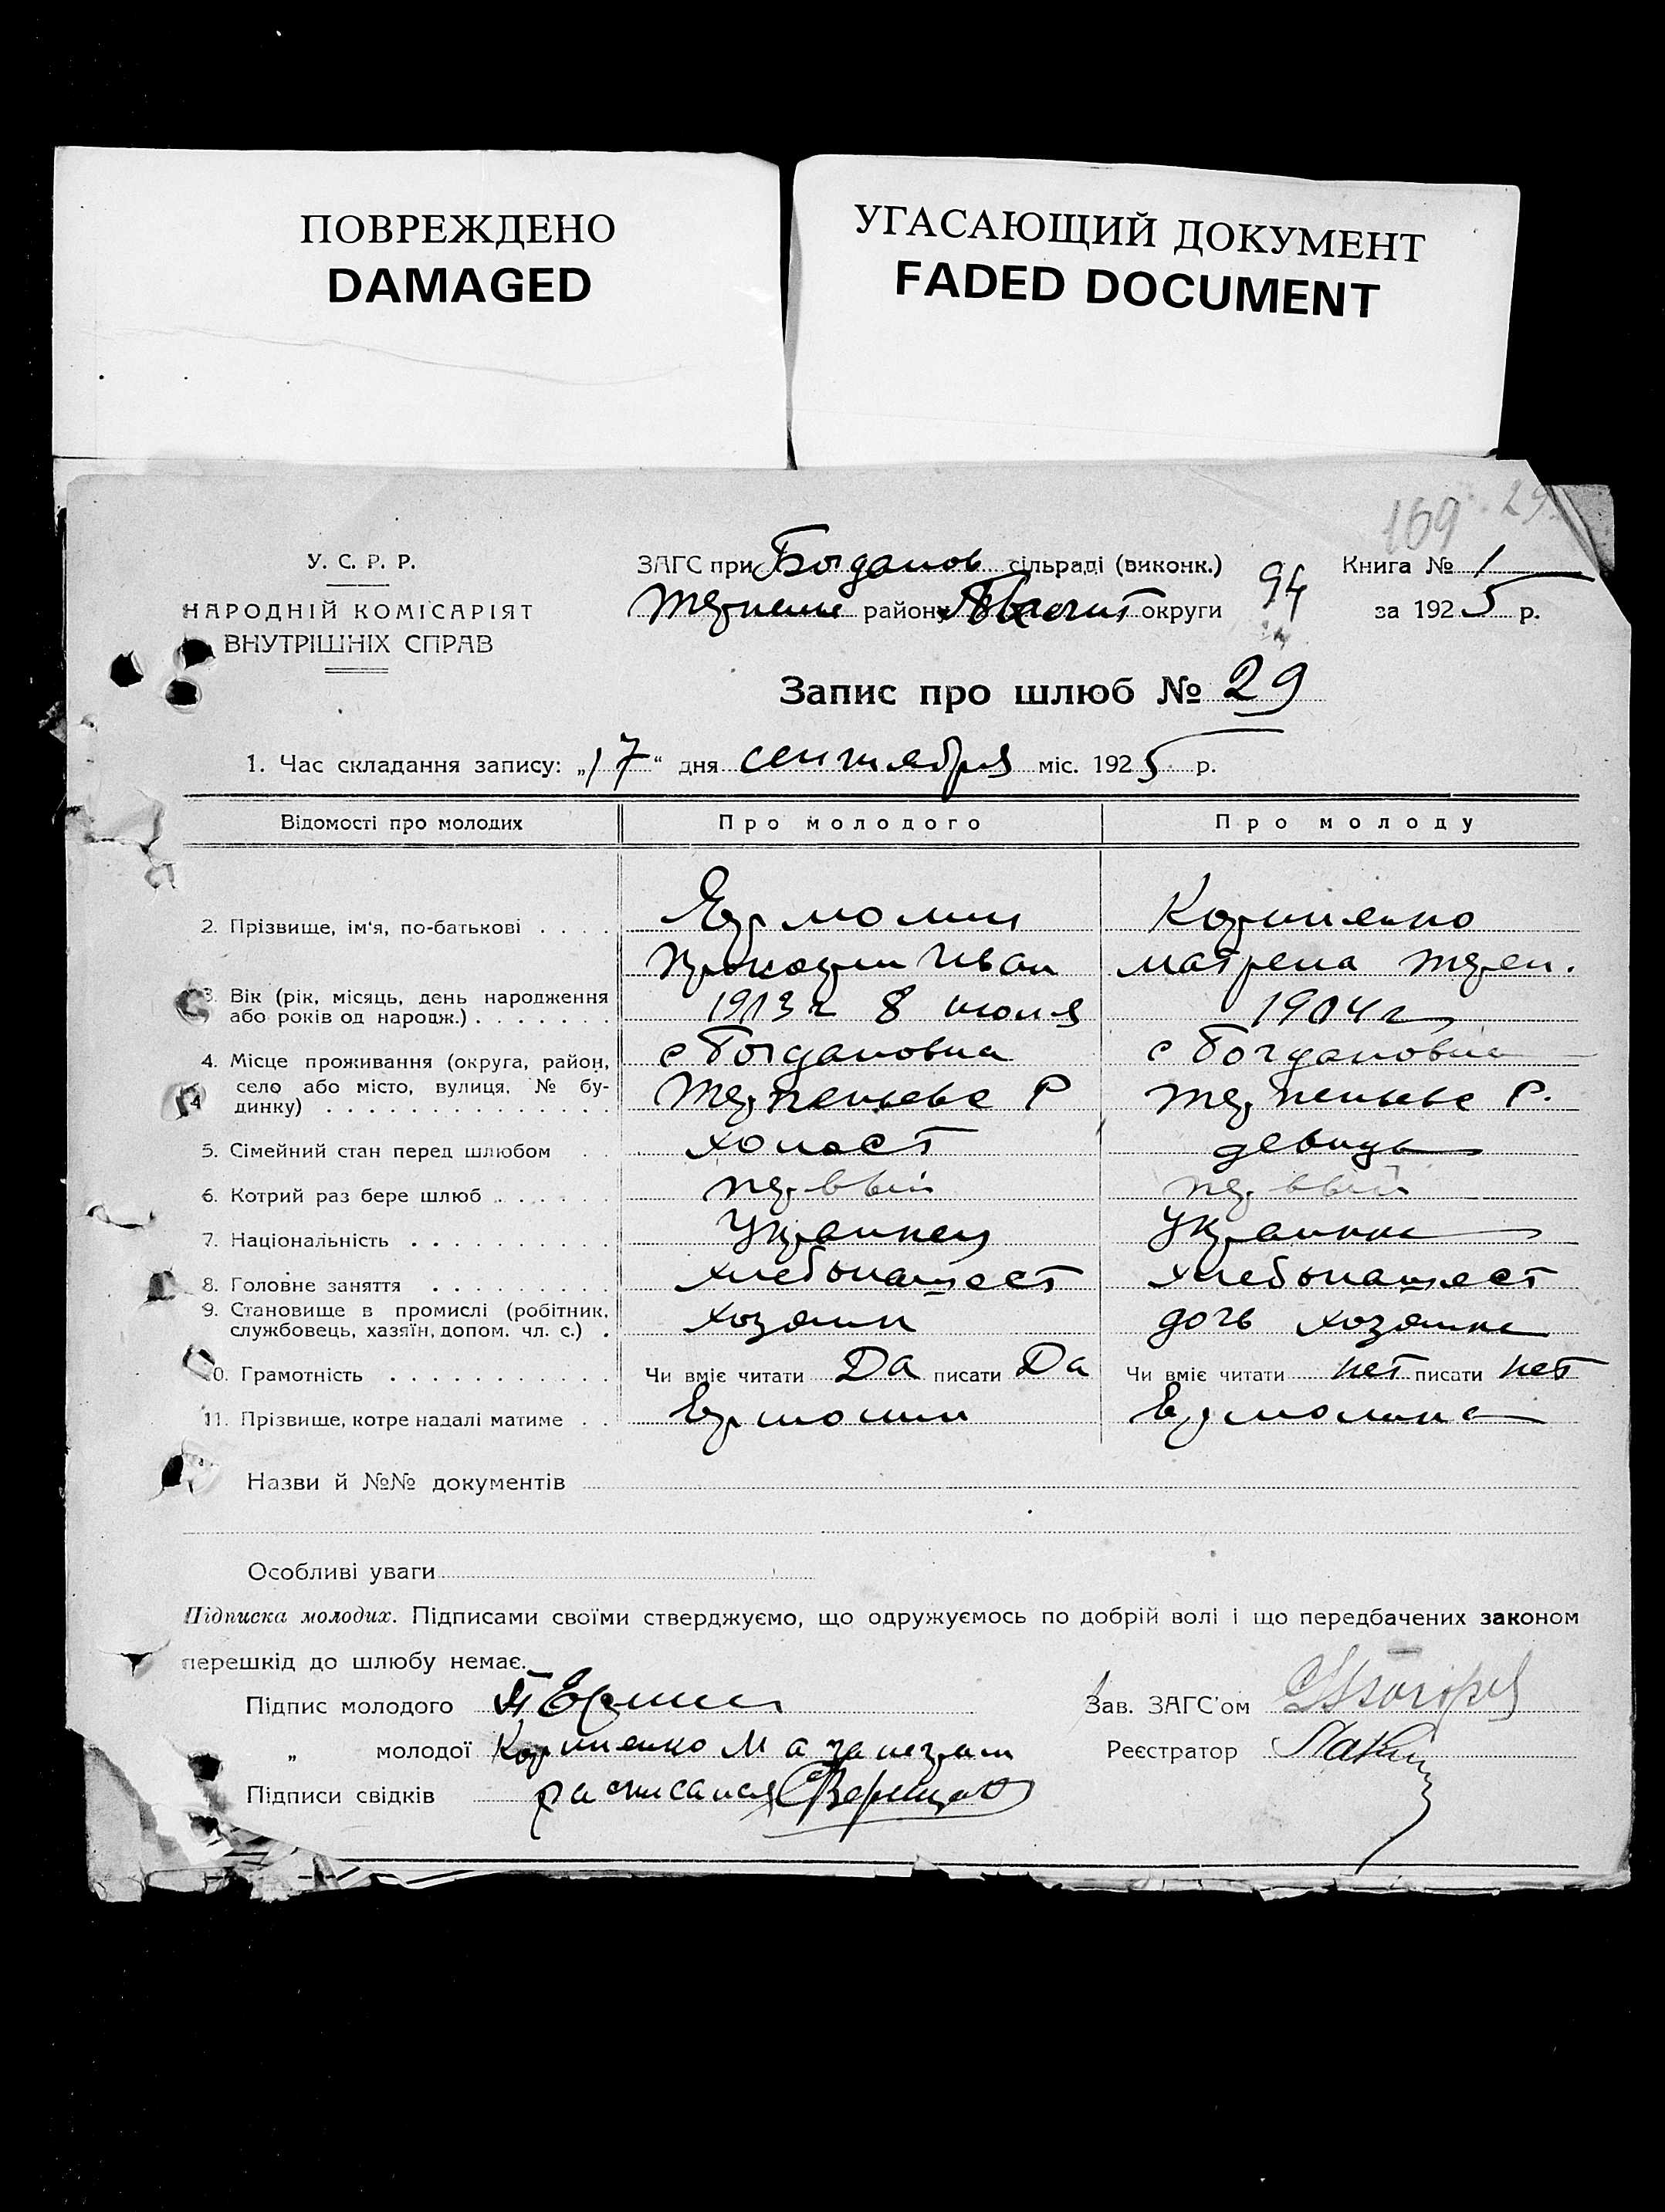 ПОВРЕЖДЕНО
DAMAGED
УГАСАЮЩИЙ ДОКУМЕНТ
FADED DOCUMENT
169 29
У. С. Р. Р.
НАРОДНІЙ КОМІСАРІЯТ
ВНУТРІШНІХ СПРАВ
ЗАГС при Богданов сільраді (виконк.)
района округи
94
Книга № 1
за 1925 р.
Запис про шлюб № 29
1. Час складання запису: „17“ дня сентября міс. 1925 р.
Відомості про молодих Про молодого Про молоду
2. Прізвище, ім'я, по-батькові . . . . Ермолин Корниенко
Иван Матрена Терен.
3. Вік (рік, місяць, день народження або років од народж.) . . . . . . . 1903 г 8 июля 1904 г
4. Місце проживання (округа, район, село або місто, вулиця, № будинку) . . . . . . . . . . . . . . с Богдановка с Богдановка
Терпеньевс Р Терпеньевс Р.
5. Сімейний стан перед шлюбом . . холост девица
6. Котрий раз бере шлюб . . . . . . первый первый
7. Національність . . . . . . . . . Украинец Украинка
8. Головне заняття . . . . . . . . хлебопашест хлебопашест
9. Становище в промислі (робітник, службовець, хазяїн, допом. чл. с.) . хозяин дочь хозяина
10. Грамотність . . . . . . . . . . . Чи вміє читати Да писати Да Чи вміє читати нет писати нет
11. Прізвище, котре надалі матиме . . Ермолин Ермолина
Назви й №№ документів
Особливі уваги
Підписка молодих. Підписами своїми стверджуємо, що одружуємось по добрій волі і що передбачених законом
перешкід до шлюбу немає.
Підпис молодого
„ молодої Корниенко М а за неграм
Підписи свідків расписался
Зав. ЗАГС'ом
Реєстратор